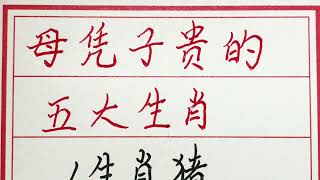 母凭子贵的
五大生肖
1生肖猪